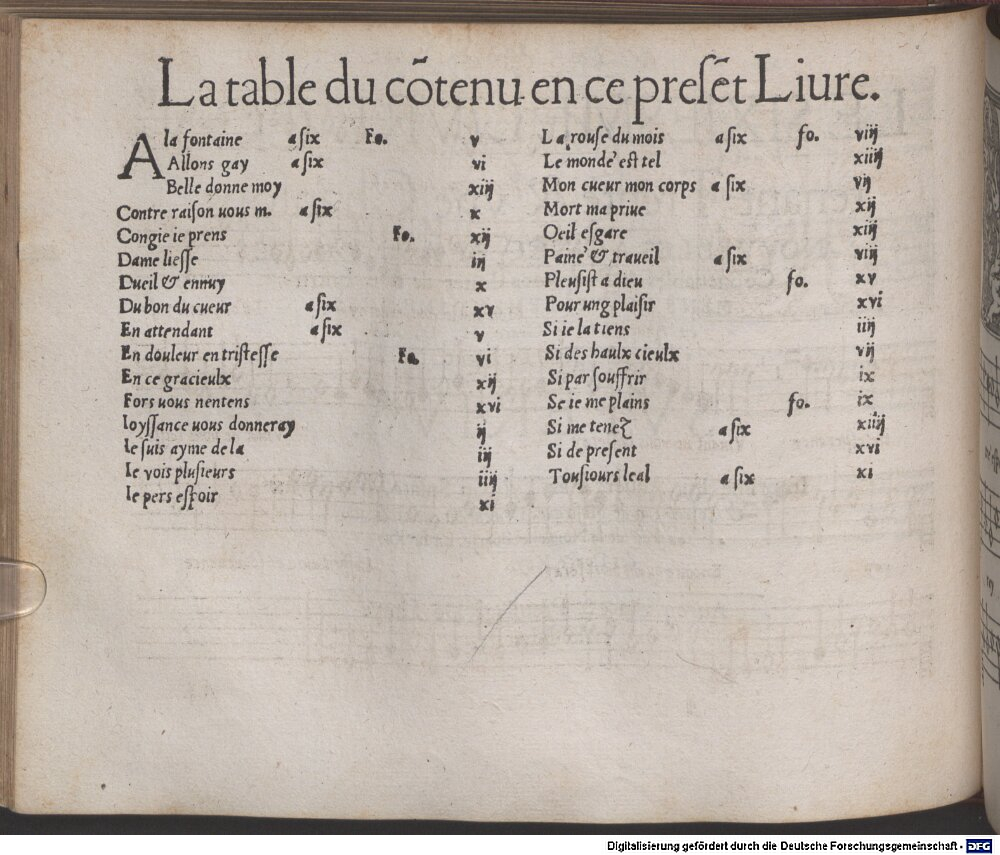 La table du cõtenu en ce preſẽt Liure.
A la fontaine a ſix Fo. v
Allons gay a ſix vi
Belle donne moy xiij
Contre raiſon uous m. a ſix x
Congie ie prens Fo. xij
Dame lieſſe iij
Dueil & ennuy x
Du bon du cueur a ſix xv
En attendant a ſix v
En douleur en triſteſſe Fo. vi
En ce gracieulx xij
Fors uous nentens xvi
Ioyſſance uous donneray ij
Ie ſuis ayme de la iij
Ie vois pluſieurs iiij
Ie pers eſpoir xi
La rouſe du mois a ſix fo. viij
Le monde eſt tel xiiij
Mon cueur mon corps a ſix vij
Mort ma priue xij
Oeil eſgare xiij
Paine & traueil a ſix viij
Pleuſiſt a dieu fo. xv
Pour ung plaiſir xvi
Si ie la tiens iiij
Si des haulx cieulx vij
Si par ſouffrir ix
Se ie me plains fo. ix
Si me tenez a ſix xiiij
Si de preſent xvi
Touſiours leal a ſix xi
Digitalisierung gefördert durch die Deutsche Forschungsgemeinschaft - DFG